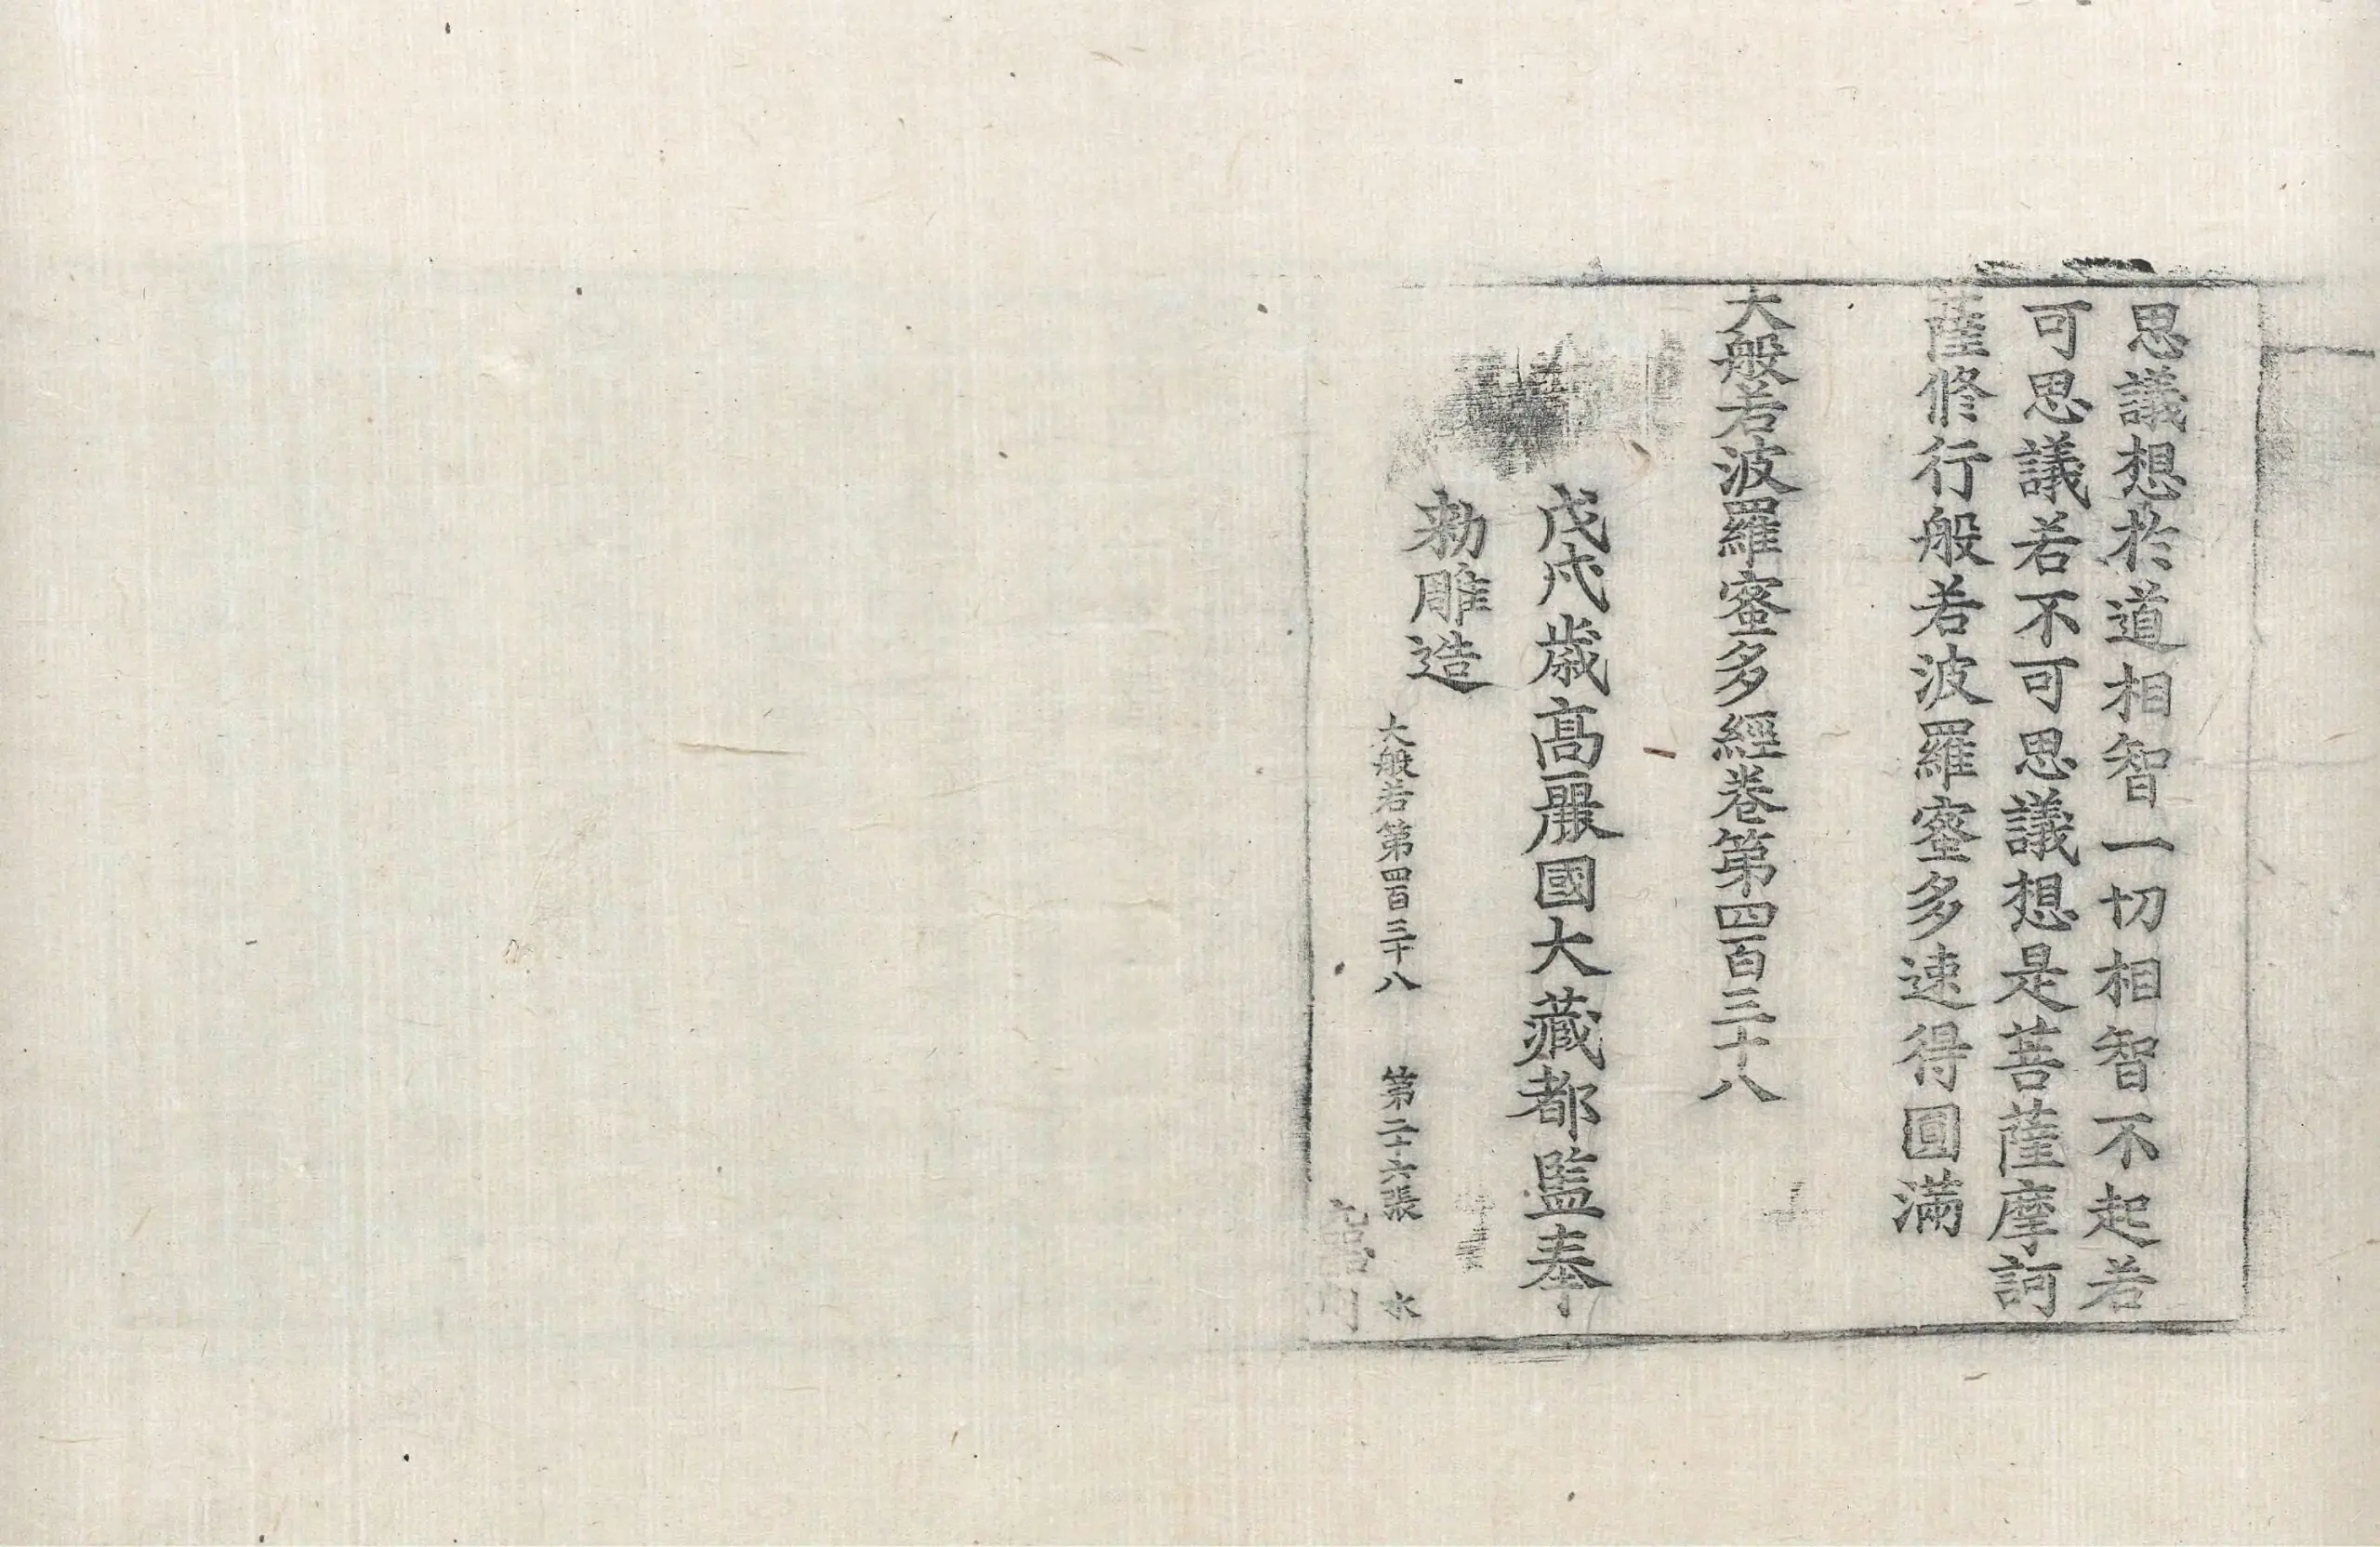 思議想於道相智一切相智不起若
可思議若不可思議想是菩薩摩訶
薩修行般若波羅蜜多速得圓滿
大般若波羅蜜多經卷第四百三十八
戊戌歲高麗國大藏都監奉
勅雕造
大般若第四百三十八 第二十六張 水